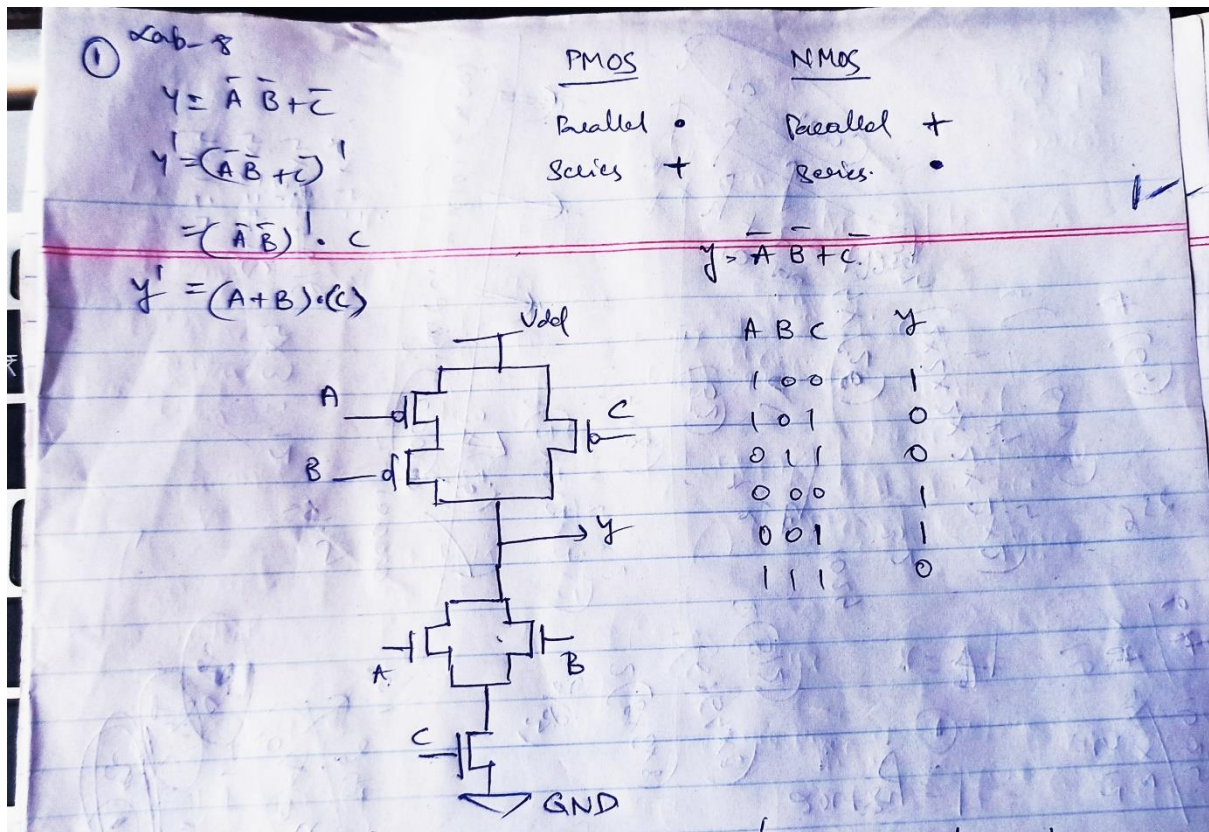 ① Lab-8
Y = A̅ B̅ + C̅
Y' = (A̅ B̅ + C̅)'
= (A̅ B̅)' . C
y' = (A+B).(C)
PMOS NMOS
Parallel • Parallel +
Series + Series. •
y = A̅ B̅ + C̅.
A B C Y
1 0 0 1
1 0 1 0
0 1 1 0
0 0 0 1
0 0 1 1
1 1 1 0
Vdd
A
C
B
Y
A
B
C
GND